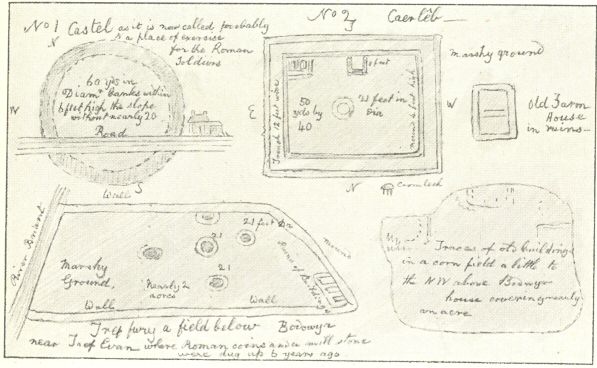 No 1 Castel as it is now called probably
a place of exercise
for the Roman
Soldiers
N
60 yds in
Diamr banks within
6 feet high the slope
without nearly 20
Road
W
E
S
No 2
Caer lêb
6 feet
50
yds by
40
21 feet in
Dia
Trench 12 feet wide
Mound 6 feet high
W
N
Cromlech
marshy ground
old Farm
House
in ruins
River Briant
Wall
21 feet Dia
21
21
Marshy
Ground,
Nearly 2
acres
Wall
Wall
Ruins of Buildings
mound
Tref fury a field below Bodowyr
near Tref Evan where Roman coins and a mill stone
were dug up 6 years ago
Traces of old buildings
in a corn field a little to
the NW above Bodowyr
house covering nearly
an acre